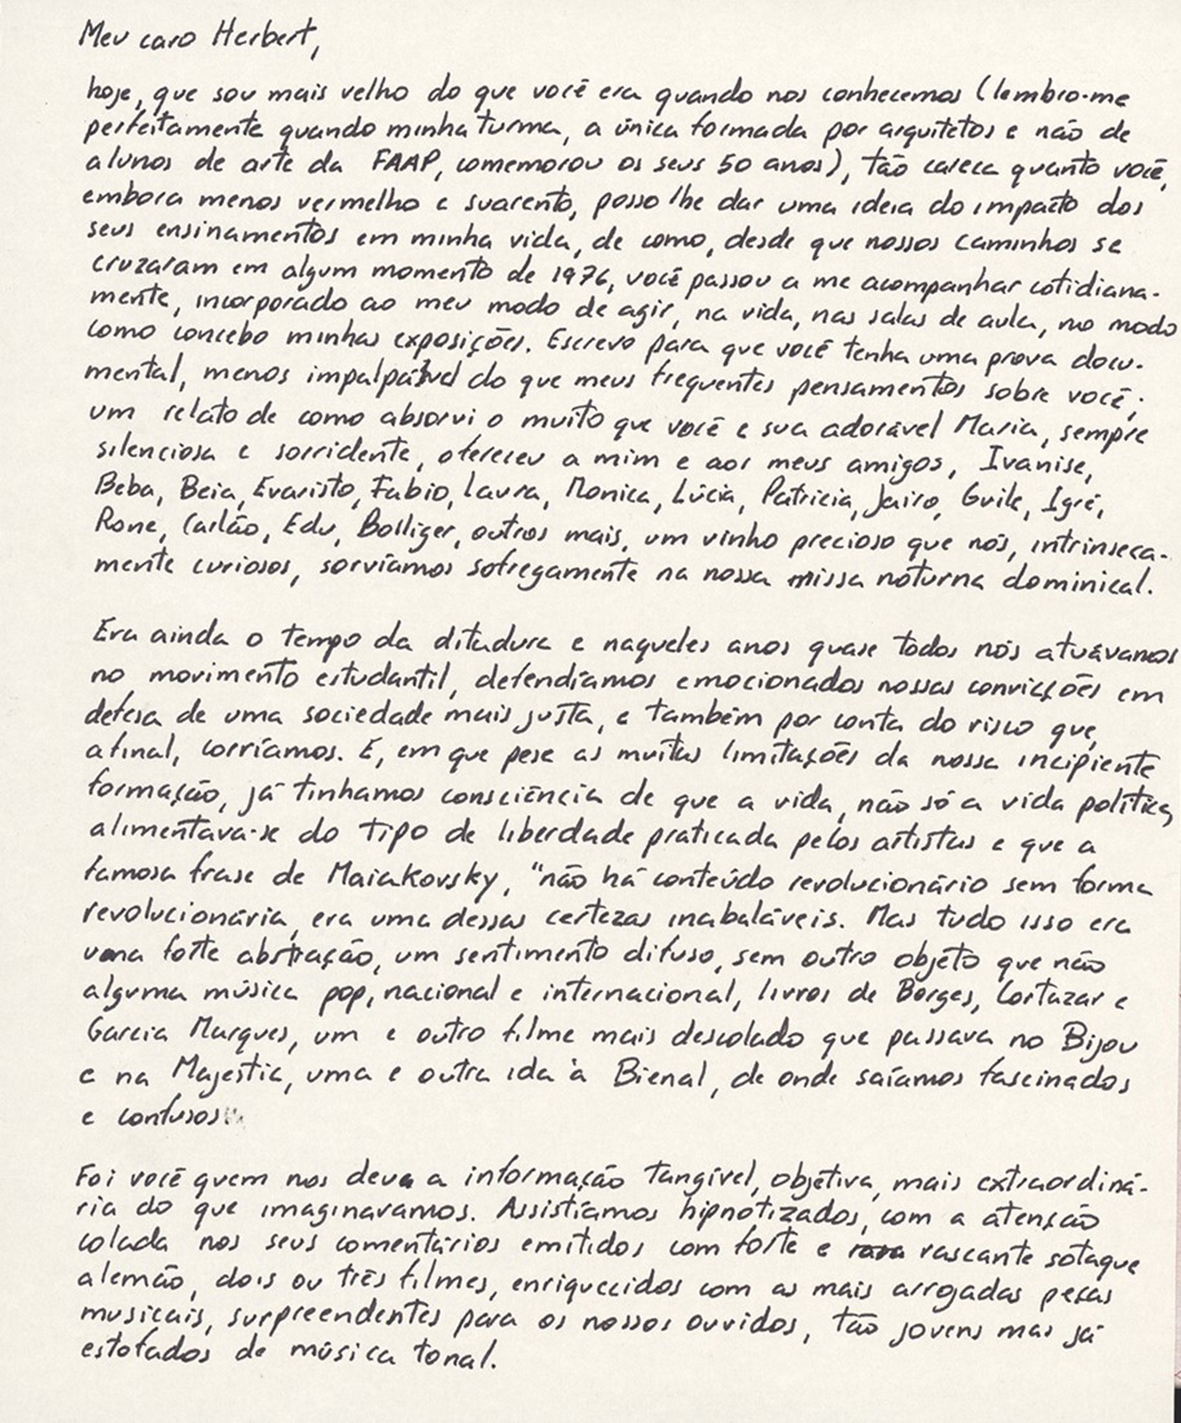 Meu caro Herbert,
hoje, que sou mais velho do que você era quando nos conhecemos (lembro-me
perfeitamente quando minha turma, a única formada por arquitetos e não de
alunos de arte da FAAP, comemorou os seus 50 anos), tão careca quanto você,
embora menos vermelho e suarento, posso lhe dar uma ideia do impacto dos
seus ensinamentos em minha vida, de como, desde que nossos caminhos se
cruzaram em algum momento de 1976, você passou a me acompanhar cotidiana-
mente, incorporado ao meu modo de agir, na vida, nas salas de aula, no modo
como concebo minhas exposições. Escrevo para que você tenha uma prova docu-
mental, menos impalpável do que meus frequentes pensamentos sobre você;
um relato de como absorvi o muito que você e sua adorável Maria, sempre
silenciosa e sorridente, ofereceu a mim e aos meus amigos, Ivanise,
Beba, Beia, Evaristo, Fabio, Laura, Monica, Lúcia, Patricia, Jairo, Guile, Igré,
Rone, Carlão, Edu, Bolliger, outros mais, um vinho precioso que nós, intrinseca-
mente curiosos, sorvíamos sofregamente na nossa missa noturna dominical.
Era ainda o tempo da ditadura e naqueles anos quase todos nós atuávamos
no movimento estudantil, defendíamos emocionados nossas convicções em
defesa de uma sociedade mais justa, e também por conta do risco que,
afinal, corríamos. E, em que pese as muitas limitações da nossa incipiente
formação, já tinhamos consciência de que a vida, não só a vida política,
alimentava-se do tipo de liberdade praticada pelos artistas e que a
famosa frase de Maiakovsky, "não há conteúdo revolucionário sem forma
revolucionária, era uma dessas certezas inabaláveis. Mas tudo isso era
uma forte abstração, um sentimento difuso, sem outro objeto que não
alguma música pop, nacional e internacional, livros de Borges, Cortazar e
Garcia Marques, um e outro filme mais descolado que passava no Bijou
e na Majestic, uma e outra ida à Bienal, de onde saíamos fascinados
e confusos.
Foi você quem nos deu a informação tangível, objetiva, mais extraordiná-
ria do que imaginavamos. Assistíamos hipnotizados, com a atenção
colada nos seus comentários emitidos com forte e rascante sotaque
alemão, dois ou três filmes, enriquecidos com as mais arrojadas peças
musicais, surpreendentes para os nossos ouvidos, tão jovens mas já
estofados de música tonal.